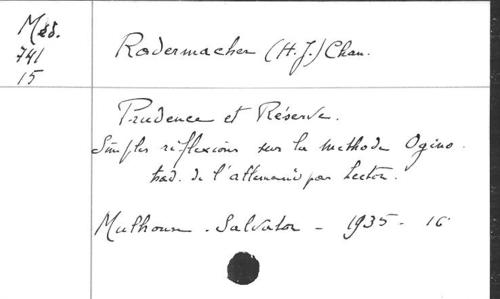 Méd.
741
15
Radermacher (H.J.) Chan.
Prudence et Réserve.
Simples réflexions sur la méthode Ogino.
trad. de l'allemand par Lector.
Mulhouse - Salvator - 1935 - 16